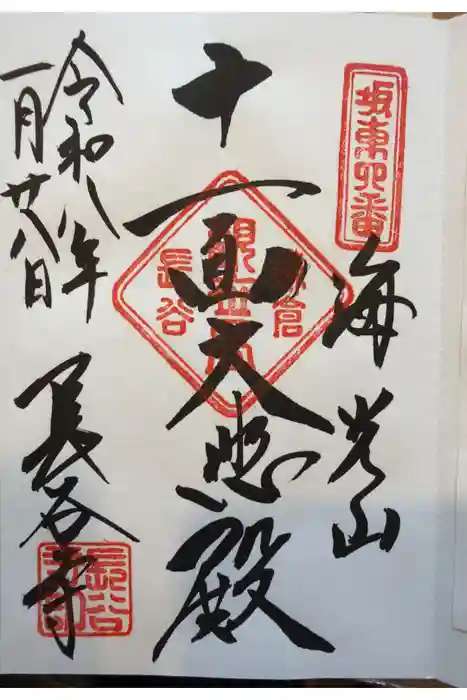 坂東四番
海光山
十一面大悲殿
鎌倉
長谷
令和八年
一月廿八日
長谷寺
長谷